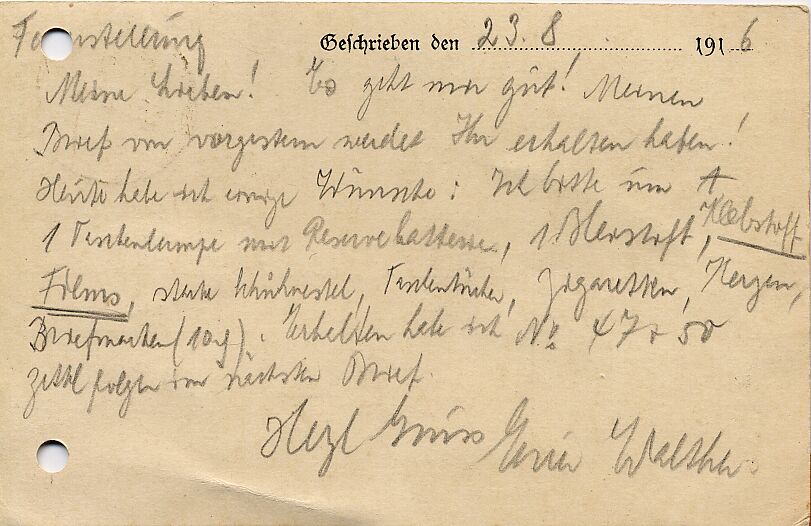 Feuerstellung Geschrieben den 23. 8. 1916
Meine Lieben! Es geht mir gut! Meinen
Brief von vorgestern werdet Ihr erhalten haben!
Heute habe ich einige Wünsche: Ich bitte um
1 Taschenlampe mit Reservebatterie, 1 Bleistift, Klebstoff
Films, starke Schuhnestel, Taschentücher, Zigaretten, Kerzen,
Briefmarken (10 ₰). Erhalten habe ich No 47 + 50
Zettel folgen im nächsten Brief.
Herzl Gruss Euer Walther.